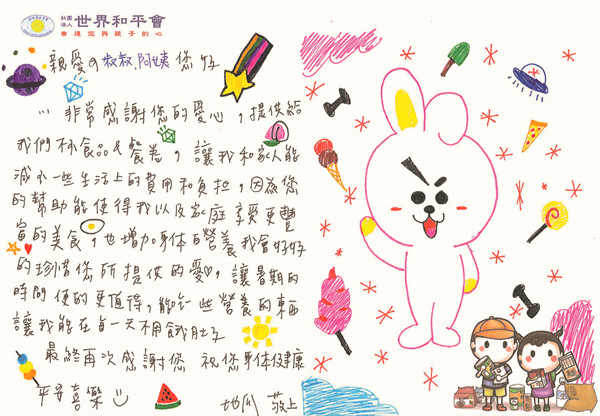 社團法人 世界和平會
串連您與孩子的心
親愛的叔叔.阿姨 您好
非常感謝您的愛心,提供給
我們林食品&餐券,讓我和家人能
減小一些生活上的費用和負担,因為您
的幫助能使得我以及家庭享受更豐
富的美食,也增加身体的營養我會好好
的珍惜您所提供的愛♡,讓暑期的
時間使的更值得,能吃一些營養的東西
讓我能在每一天不用餓肚子
最終再次感謝您 祝您身体健康
平安喜樂
地瓜 敬上